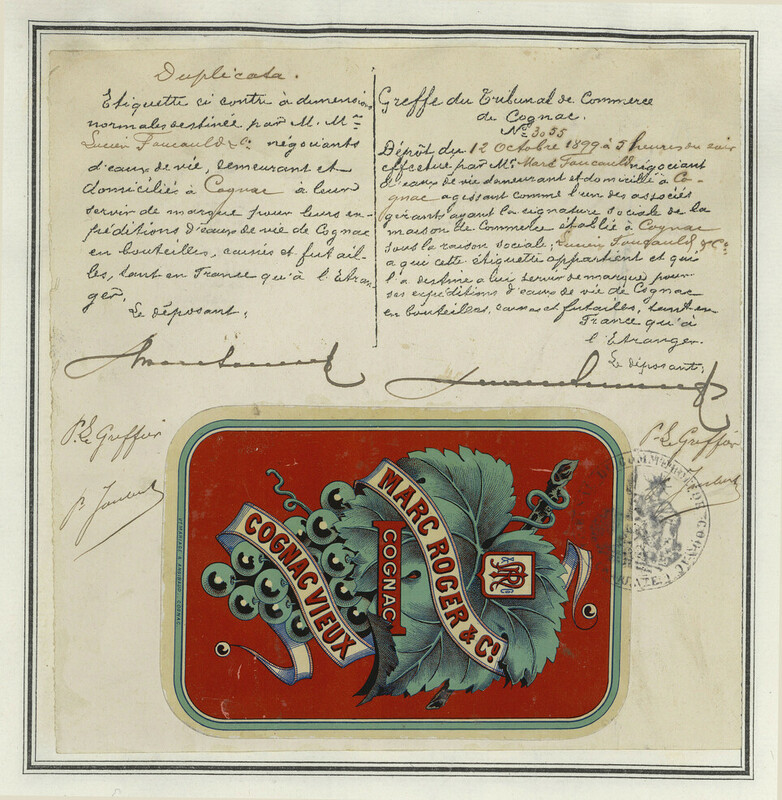 Duplicata.
Etiquette ci contre à dimension
normales destinée par M. Mrs
Lucien Foucauld & Cie négociants
d'eaux de vie, demeurant et
domiciliés à Cognac à leur
servir de marque pour leurs ex-
péditions d'eaux de vie de Cognac
en bouteilles, caisses et futail-
les, tant en France qu'à l'Etran-
ger.
Le déposant,
P. Le Greffier
P. Joubert
Greffe du Tribunal de Commerce
de Cognac.
No 3055
Dépôt du 12 Octobre 1899 à 5 heures du soir
effectué par Mr Marc Foucauld négociant
d'eaux de vie demeurant et domicilié à Co-
gnac agissant comme l'un des associés
gérants ayant la signature sociale de la
maison de Commerce établie à Cognac
sous la raison sociale, Lucien Foucauld, & Co
a qui cette étiquette appartient et qui
l'a destine a lui servir de marque pour
ses expéditions d'eaux de vie de Cognac
en bouteilles, caisses et futailles, tant en
France qu'à
l'Etranger.
Le déposant,
P. Le Greffier
Joubert
MARC ROGER & Co.
COGNAC
COGNAC VIEUX
MR
& Co
COGNAC